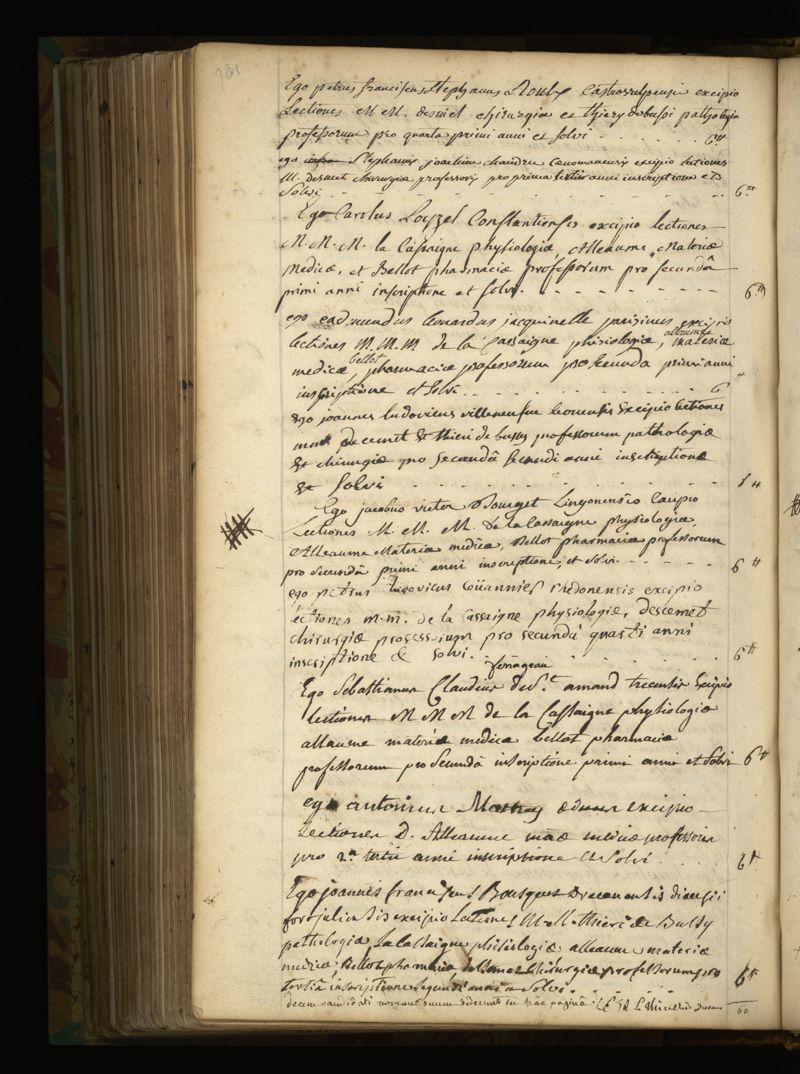 101
Ego petrus franciscus Stephanus Roulx excipio
Lectiones M M. desmet chirurgiæ et thiery debussi pathologiæ
professorum pro quarta primi anni et solvi . . . . . . 6tt
ego Stephanus joachim chandru cenomanensis excipio lectiones
M. desmet chirurgiæ professoris pro prima anni inscriptione et
Solvi . . . . . . 6tt
Ego Carolus Loyzel Constantiensis excipio lectiones
M. M. M. la Cassaigne physiologiæ, Alleaume Materiæ
Medicæ, et Bellot pharmaciæ professorum pro secundâ
primi anni inscriptione et solvi. . . . . . . 6tt
ego eadmundus leonardus jacquinelle parisinus excipio
lectiones M. M. M de la Cassaigne phisiologiæ, alleaume materiæ
medicæ, bellot pharmaciæ professorum pro secunda primi anni
inscriptione et solvi . . . . . . 6tt
Ego joannes ludovicus villeneufve Excipio lectiones
et thieri de bussy professorum pathologiæ
et chirurgiæ pro secundâ secundi anni inscriptione
et solvi . . . . . .
Ego jacobus victor Bourget Lingonensis Excipio
Lectiones M. M. M. De la Cassaigne physiologiæ,
Alleaume Materiæ medicæ, Bellot pharmaciæ professorum
pro secundâ primi anni inscriptione, et solvi. . . . . . 6tt
ego petrus ludovicus rhedonensis excipio
lectiones m. m. de la Cassaigne physiologiæ, descemet
chirurgiæ professorum pro secundâ quarti anni
inscriptione & solvi. . . . . . 6tt
Ego Sebastianus Claudius de St. amand trecensis Excipio
lectiones M M M de la Cassaigne physiologiæ
alleaume materiæ medicæ bellot pharmaciæ
professorum pro secundâ inscriptione primi anni et solvi 6tt
ego antonius excipio
Lectiones D. Alleaume mæ medicæ professoris
pro 2a tertii anni inscriptione et solvi . . . 6tt
Ego joannes franciscus Bousquet
forojuliensis excipio Lectiones M. M. thieri de Bussy
pathologiæ, La Cassaigne phisiologiæ alleaume materiæ
medicæ, Bellot pharmaciæ, chirurgiæ professorum pro
tertiâ inscriptione secundi anni et solvi. . . . . 6tt
decem candidati nomen suum dederunt in hac paginâ 60